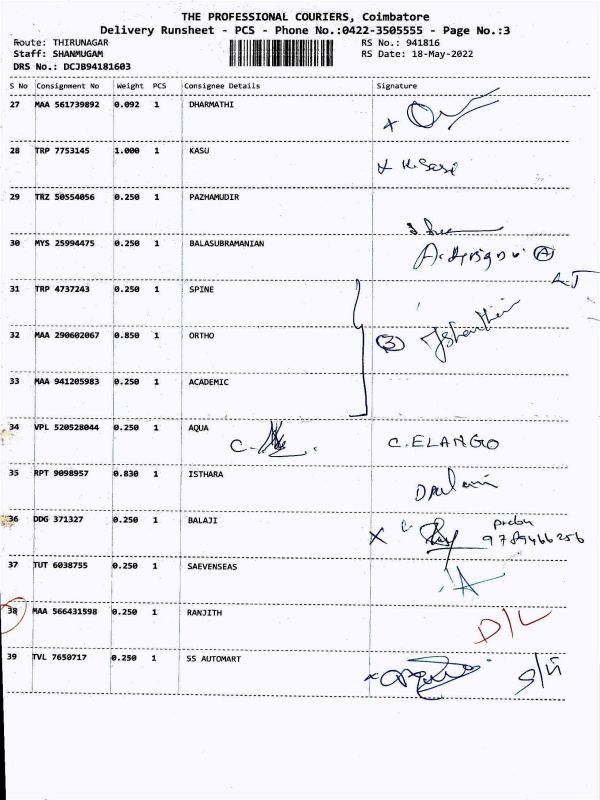 THE PROFESSIONAL COURIERS, Coimbatore
Delivery Runsheet - PCS - Phone No.:0422-3505555 - Page No.:3
Route: THIRUNAGAR RS No.: 941816
Staff: SHANMUGAM RS Date: 18-May-2022
DRS No.: DCJB94181603
S No Consignment No Weight PCS Consignee Details Signature
27 MAA 561739892 0.092 1 DHARMATHI
28 TRP 7753145 1.000 1 KASU
29 TRZ 50554056 0.250 1 PAZHAMUDIR
30 MYS 25994475 0.250 1 BALASUBRAMANIAN
31 TRP 4737243 0.250 1 SPINE
32 MAA 290602067 0.850 1 ORTHO 3
33 MAA 941205983 0.250 1 ACADEMIC
34 VPL 520528044 0.250 1 AQUA C. ELANGO
35 RPT 9098957 0.830 1 ISTHARA
36 DDG 371327 0.250 1 BALAJI 9789466256
37 TUT 6038755 0.250 1 SAEVENSEAS
38 MAA 566431598 0.250 1 RANJITH D/L
39 TVL 7650717 0.250 1 SS AUTOMART